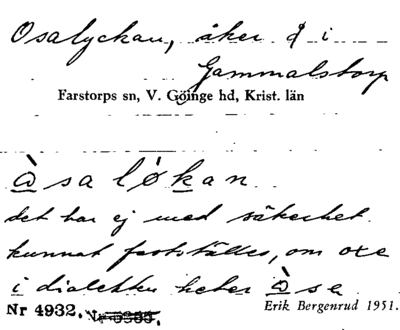 Osalyckan, åker i
Gammalstorp
Farstorps sn, V. Göinge hd, Krist. län
ὼsaløkan
det har ej med säkerhet
kunnat fastställas, om oxe
i dialekten heter ὼse
Nr 4932.
Erik Bergenrud 1951.